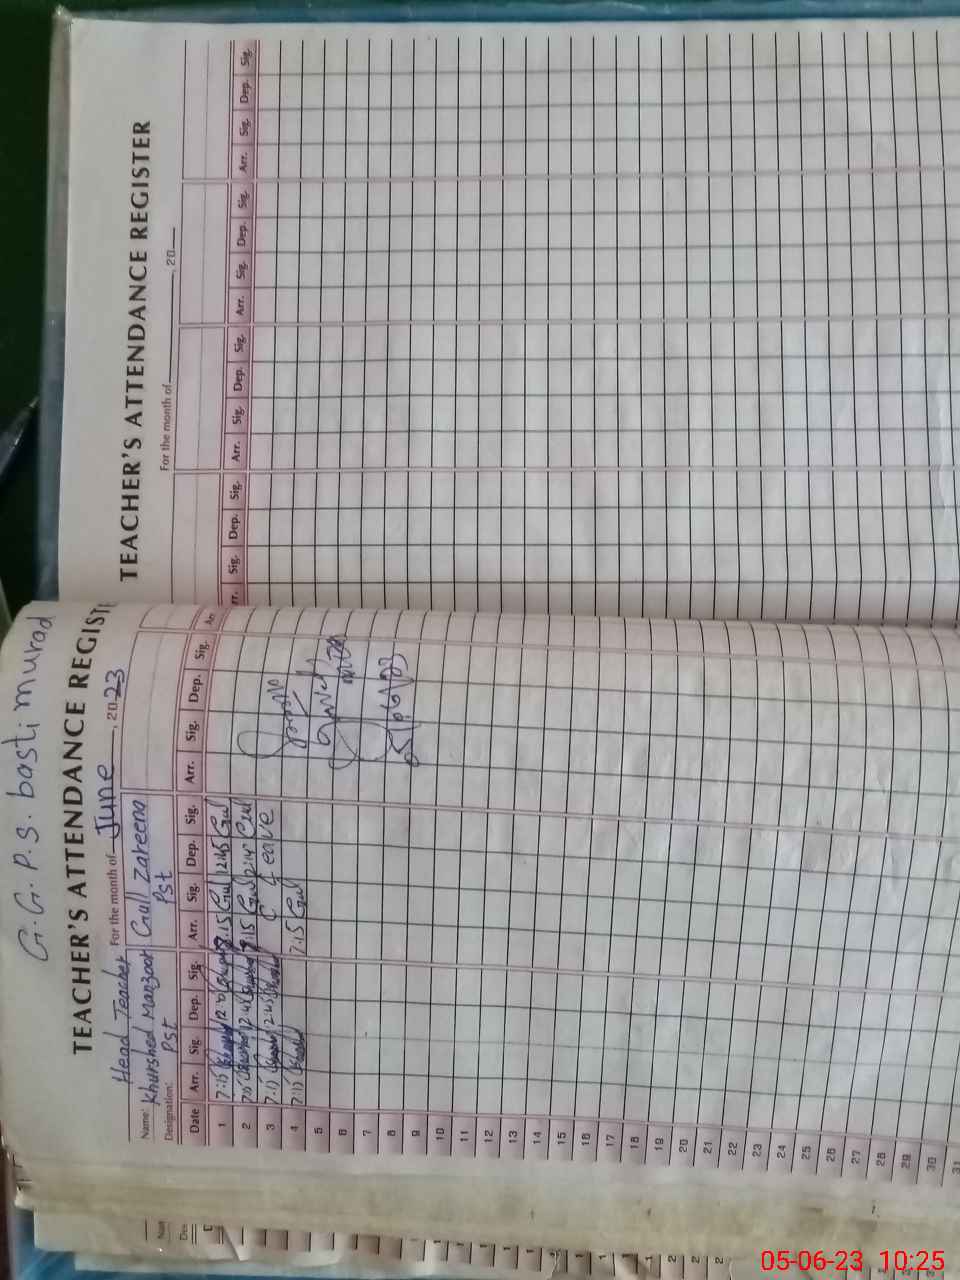 G.G.P.S. basti murad
TEACHER'S ATTENDANCE REGIST
Head Teacher For the month of June, 2023
Name: Khurshed Manzoor Gull Zareena
Designation: Pst Pst
Date Arr. Sig. Dep. Sig. Arr. Sig. Dep. Sig. Arr. Sig. Dep. Sig. Arr
1 7:15 12 Gul 12:45 Gul
2 Gul Gul
3 7:15 12:45 C Leave
4 7:15 7:15 Gul
5
6
7
8
9
10
11
12
13
14
15
16
17
18
19
20
21
22
23
24
25
26
27
28
29
30
31
TEACHER'S ATTENDANCE REGISTER
For the month of , 20
rr. Sig. Dep. Sig. Arr. Sig. Dep. Sig. Arr. Sig. Dep. Sig. Arr. Sig. Dep. Sig.
05-06-23 10:25